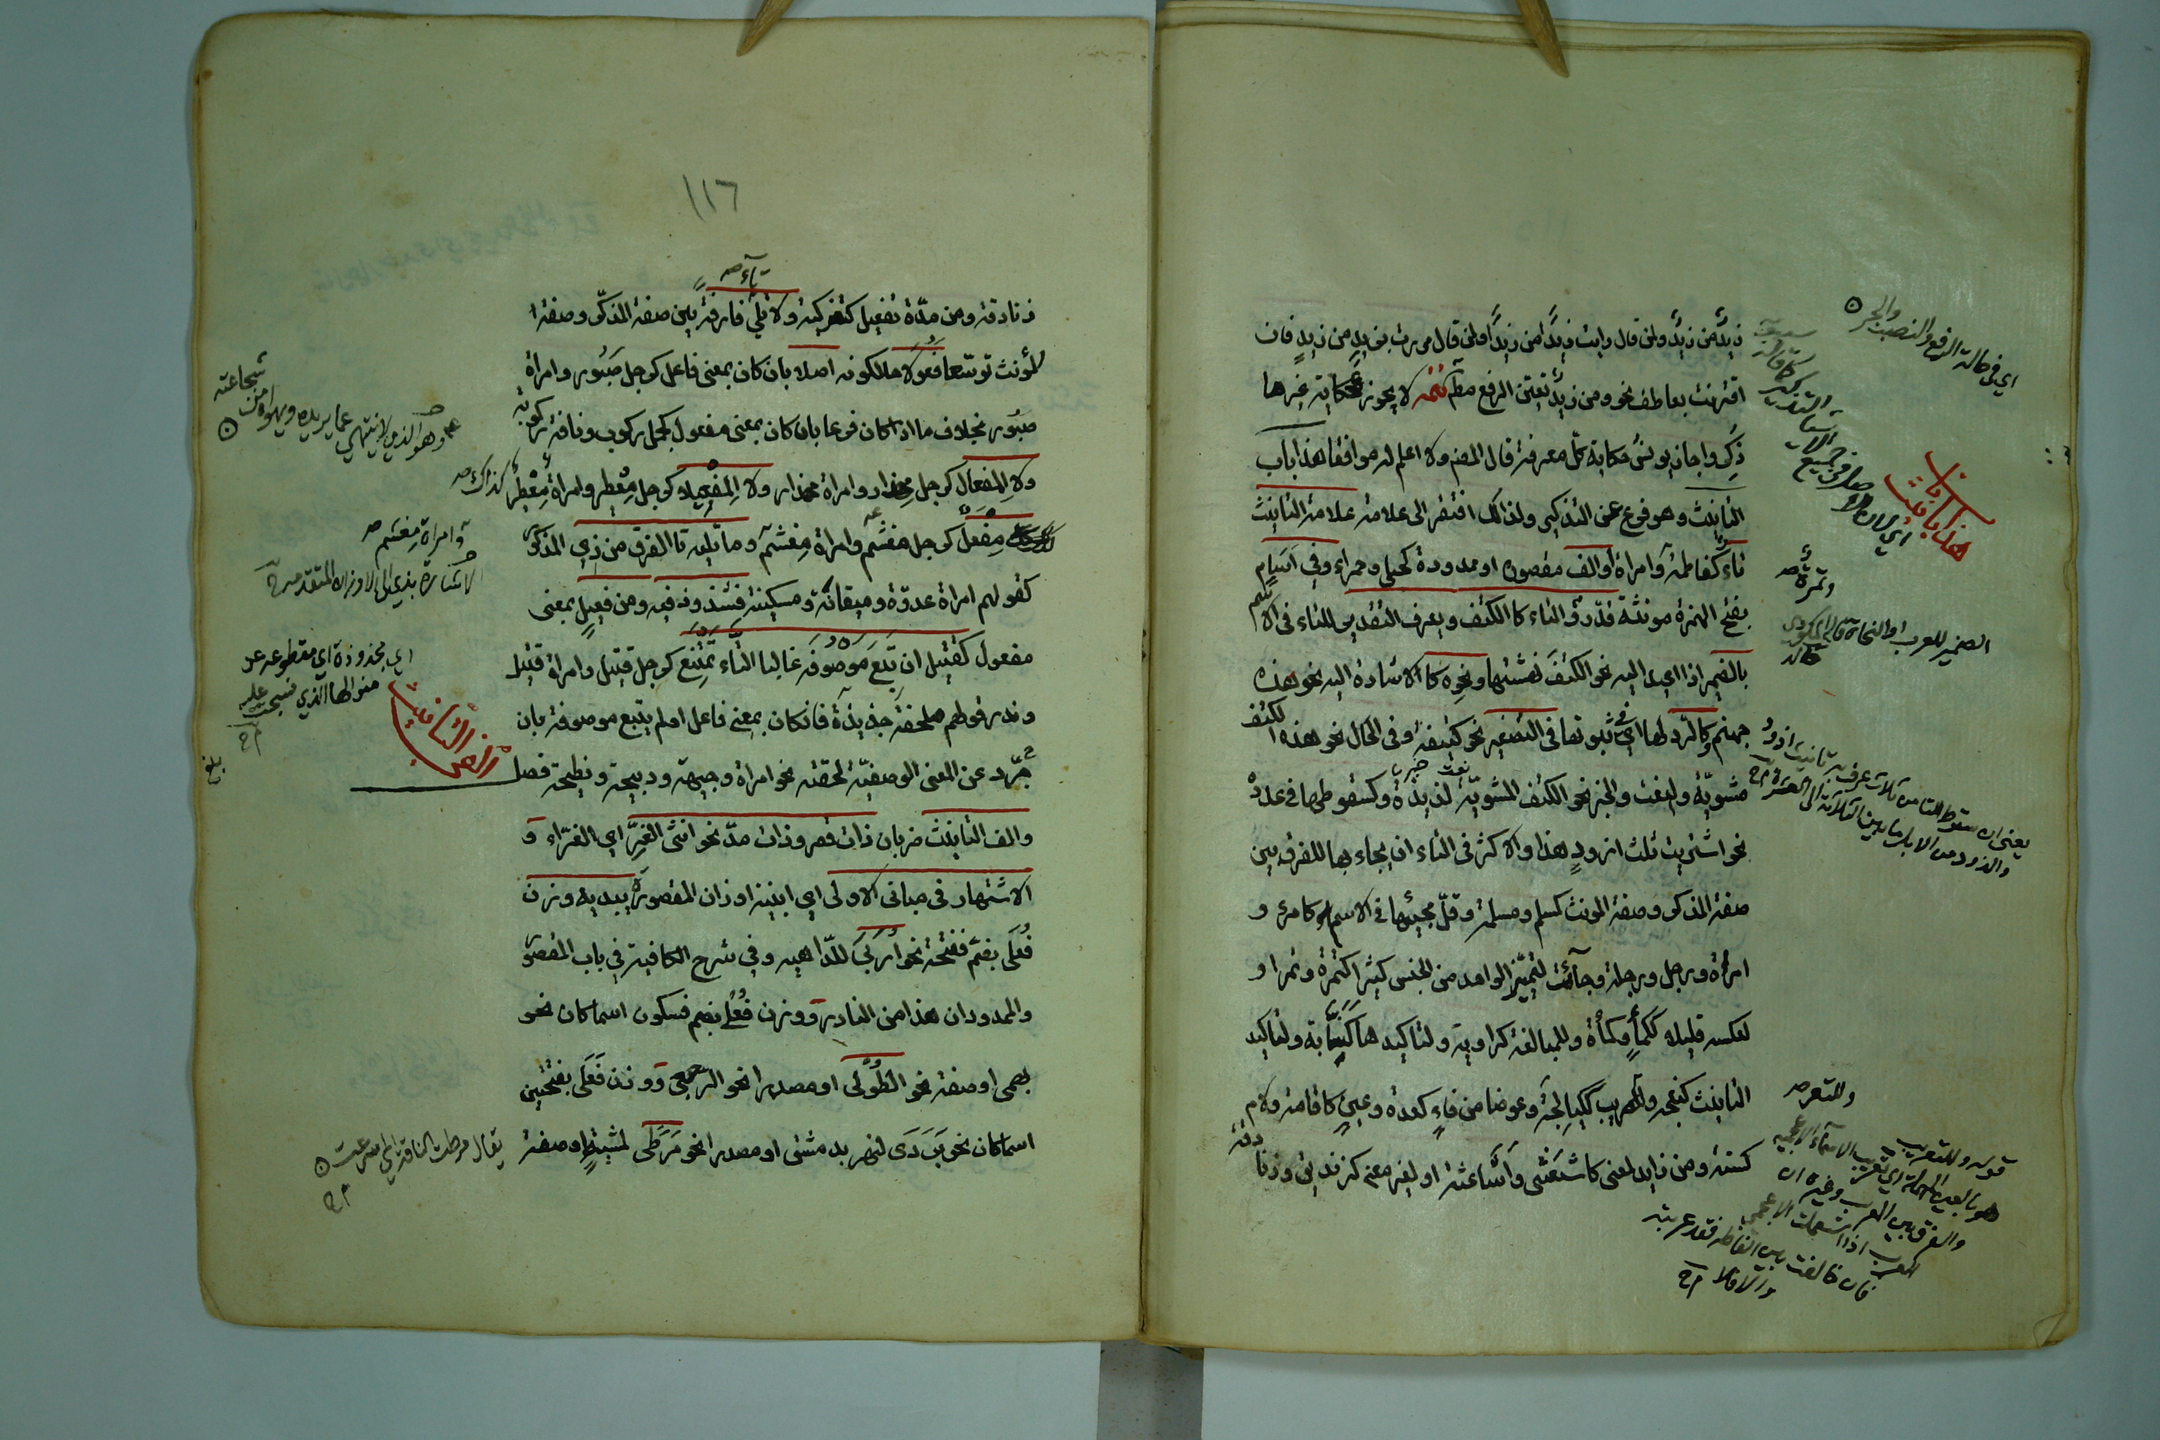 زيدٌ من زيدٌ ولمن قال رايت زيدًا من زيدًا ولمن قال مررت بزيدٍ من زيدٍ فان
اقترنت بعاطف نحو ومن زيدٌ تعين الرفع مط تتمه لا يجوز حكاية غيرها
ذكر واجاز يونس حكاية كل معرفة قال المص ولا اعلم له موافقا هذا باب
التانيث وهو فرع عن التذكير ولذلك افتقر الى علامة علامة التانيث
تاء كفاطمة وامراة او الف مقصورة او ممدودة كحبلى وحمراء وفي اسامٍ
بفتح الهمزة مونثة قدّروا التاء كالكتف ويعرف التقدير للتاء في الاسم
بالضمير اذا اعيد اليه نحو الكتف نهشتها ونحوه كالاشارة اليه نحو هذه
جهنم وكالرد لها اي ثبوتها في التصغير نحو كتيفة وفي الحال نحو هذه الكتف
مشويّة والنعت والخبر نحو الكتف المشوية لذيذة وكسقوطها في عدده
نحو اشتريت ثلث اذودٍ هذا والاكثر في التاء ان يجاء بها للفرق بين
صفة المذكر وصفة المونث كمسلم ومسلمة وقلّ مجيئها في الاسم كامرء و
امراة ورجل ورجلة وجآئت لتميّز الواحد من الجنس كثيرا كتمرة وتمرا و
لعكسه قليلا ككمأٍ وكمأة وللمبالغة كراوية ولتاكيدها كنسّابة ولتاكيد
التانيث كنعجه وللتعريب ككيالجة وعوضا من فاءٍ كعدة وعينٍ كاقامة ولام
كسنة ومن زايد لمعنى كاشعثى واشاعثة او لغير معنى كزنديق وزنادقة
اي في حالة الرفع والنصب والجر
هذا باب التانيث
وتمرة صح
الضمير للعرب او النحاة قاله المكودي
خالد
يعني ان سقوط التا من ثلاث عرف به تانيث اذود
والذود من الابل ما بين الثلاثة الى العشرة
وللتعر صح
قوله وللتعريب
هو بالعين المهملة اي تعريب الاسماء الاعجمية
والفرق بين المعرب وغيره ان
العرب اذا استعملت الاعجمي
فان خالفت بين الفاظه فقد عربته
والا فلا
١١٦
تاء صح
زنادقة ومن مدّة تفعيل كتزكية ولا تلي فارقة بين صفة المذكّر وصفة ا
لمؤنث توسّعا فعولا مالكونه اصلا بان كان بمعنى فاعل كرجل صبُور وامراة
صبُور بخلاف ما اذا كان فرعا بان كان بمعنى مفعول كجمل ركوب وناقة ركوبة
ولا المفعال كرجل مهذار وامراة مهذار ولا المِفعيلا كرجل مِعْطير وامراة مِعْطير كذاك صح
مِفعَل كرجل مغشم وامراة مِغشم وما تليه تا الفرق من ذي المذكور
كقولهم امراة عدوّة وميقانة ومسكينة فشذوذ فيه ومن فعيلٍ بمعنى
مفعول كقتيل ان تبع موصُوفَه غالبا التّاء تمتنع كرجل قتيل وامراة قتيل
وندر قولهم ملحفة جذيذة فان كان بمعنى فاعل او لم يتبع موصوفه بان
جرّد عن المعنى الوصفيّة لحقته نحو امراة وجيهة وذبيحة ونطيحة فصل
والف التانيث ضربان ذات قصر وذات مدّ نحو انثى الغرّ اي الغرّاء و
الاشتهار في مباني الاولى اي ابنية اوزان المقصورة يبديه وزن
فُعَلى بضم ففتحة نحو ارَبَى للدّاهيه وفي شرح الكافية في باب المقصور
والممدود ان هذا من النادر ووزن فُعْلى بضم فسكون اسما كان نحو
بهمى او صفة نحو الطّولى او مصدرا نحو الرجعى ووزن فَعَلى بفتحتين
اسما كان نحو بَرَدَى لنهر بدمشق او مصدرا نحو مَرَطَى لمشيةٍ او صفة
وهو الذي لا ينتهي عما يريده ويهواه من شجاعته
وامراة مغشم صح
الاشارة بذي الى الاوزان المتقدمة
اي مجذوذة اي مقطوعة عن
منوالها الذي نسجت عليه
الف التانيث
بلغ
يقال مرطت الناقة اي اسرعت